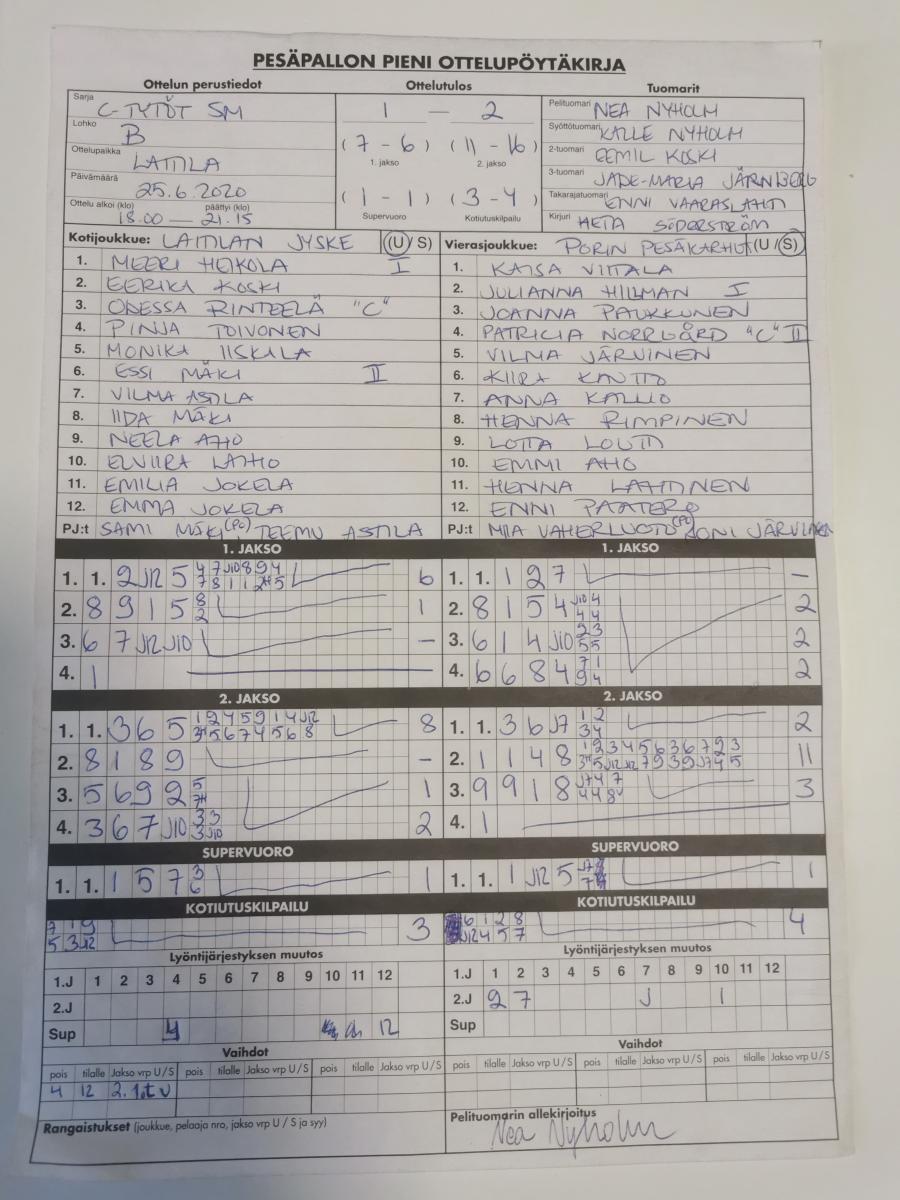 PESÄPALLON PIENI OTTELUPÖYTÄKIRJA
Ottelun perustiedot Ottelutulos Tuomarit
Sarja C-TYTÖT SM
Lohko B
Ottelupaikka LAITILA
Päivämäärä 25.6.2020
Ottelu alkoi (klo) päättyi (klo)
18.00 — 21.15
1 — 2
(7 - 6) (11 - 16)
1. jakso 2. jakso
(1 - 1) (3 - 4)
Supervuoro Kotiutuskilpailu
Pelituomari NEA NYHOLM
Syöttötuomari KALLE NYHOLM
2-tuomari EEMIL KOSKI
3-tuomari JADE-MARIA JÄRNBERG
Takarajatuomari ENNI VAARASLAHTI
Kirjuri HETA SÖDERSTRÖM
Kotijoukkue: LAITILAN JYSKE (U / S)
1. MEERI HEIKOLA I
2. EERIKA KOSKI
3. ODESSA RINTEELÄ "C"
4. PINJA TOIVONEN
5. MONIKA IISKALA
6. ESSI MÄKI II
7. VILMA ASTILA
8. IIDA MÄKI
9. NEELA AHO
10. ELVIIRA LAIHO
11. EMILIA JOKELA
12. EMMA JOKELA
PJ:t SAMI MÄKI (PC), TEEMU ASTILA
Vierasjoukkue: PORIN PESÄKARHUT (U / S)
1. KAISA VIITALA
2. JULIANNA HILLMAN I
3. JOANNA PAUKKUNEN
4. PATRICIA NORRGÅRD "C" II
5. VILMA JÄRVINEN
6. KIIRA KANTTO
7. ANNA KALLIO
8. HENNA RIMPINEN
9. LOTTA LOUTI
10. EMMI AHO
11. HENNA LAHTINEN
12. ENNI PAATERO
PJ:t MIA VAHERLUOTO (PC) JONI JÄRVINEN
1. JAKSO 1. JAKSO
1. 1. 2 J12 5 6
2. 8 9 1 5 8 2 1
3. 6 7 J12 J10 —
4. 1
1. 1. 1 2 7 —
2. 8 1 5 4 J10 4 4 4 2
3. 6 1 4 J10 2 3 5 5 2
4. 6 6 8 4 7 1 9 4 2
2. JAKSO 2. JAKSO
1. 1. 3 6 5 1 2 4 5 9 1 4 J12 8
2. 8 1 8 9 —
3. 5 6 9 2 5 1
4. 3 6 7 J10 3 3 3 J10 2
1. 1. 3 6 J7 1 2 3 4 2
2. 1 1 4 8 1 2 3 4 5 6 3 6 7 2 3 11
3. 9 9 1 8 3
4. 1
SUPERVUORO SUPERVUORO
1. 1. 1 5 7 3 6 1
1. 1. 1 J12 5 1
KOTIUTUSKILPAILU KOTIUTUSKILPAILU
7 1 9
5 3 12 3
6 1 2 8
J12 4 5 7 4
Lyöntijärjestyksen muutos Lyöntijärjestyksen muutos
1.J 1 2 3 4 5 6 7 8 9 10 11 12
2.J
Sup 4 12
1.J 1 2 3 4 5 6 7 8 9 10 11 12
2.J 2 7 J 1
Sup
Vaihdot Vaihdot
pois tilalle Jakso vrp U / S pois tilalle Jakso vrp U / S pois tilalle Jakso vrp U / S
4 12 2. 1.t v
pois tilalle Jakso vrp U / S pois tilalle Jakso vrp U / S pois tilalle Jakso vrp U / S
Rangaistukset (joukkue, pelaaja nro, jakso vrp U / S ja syy)
Pelituomarin allekirjoitus
Nea Nyholm